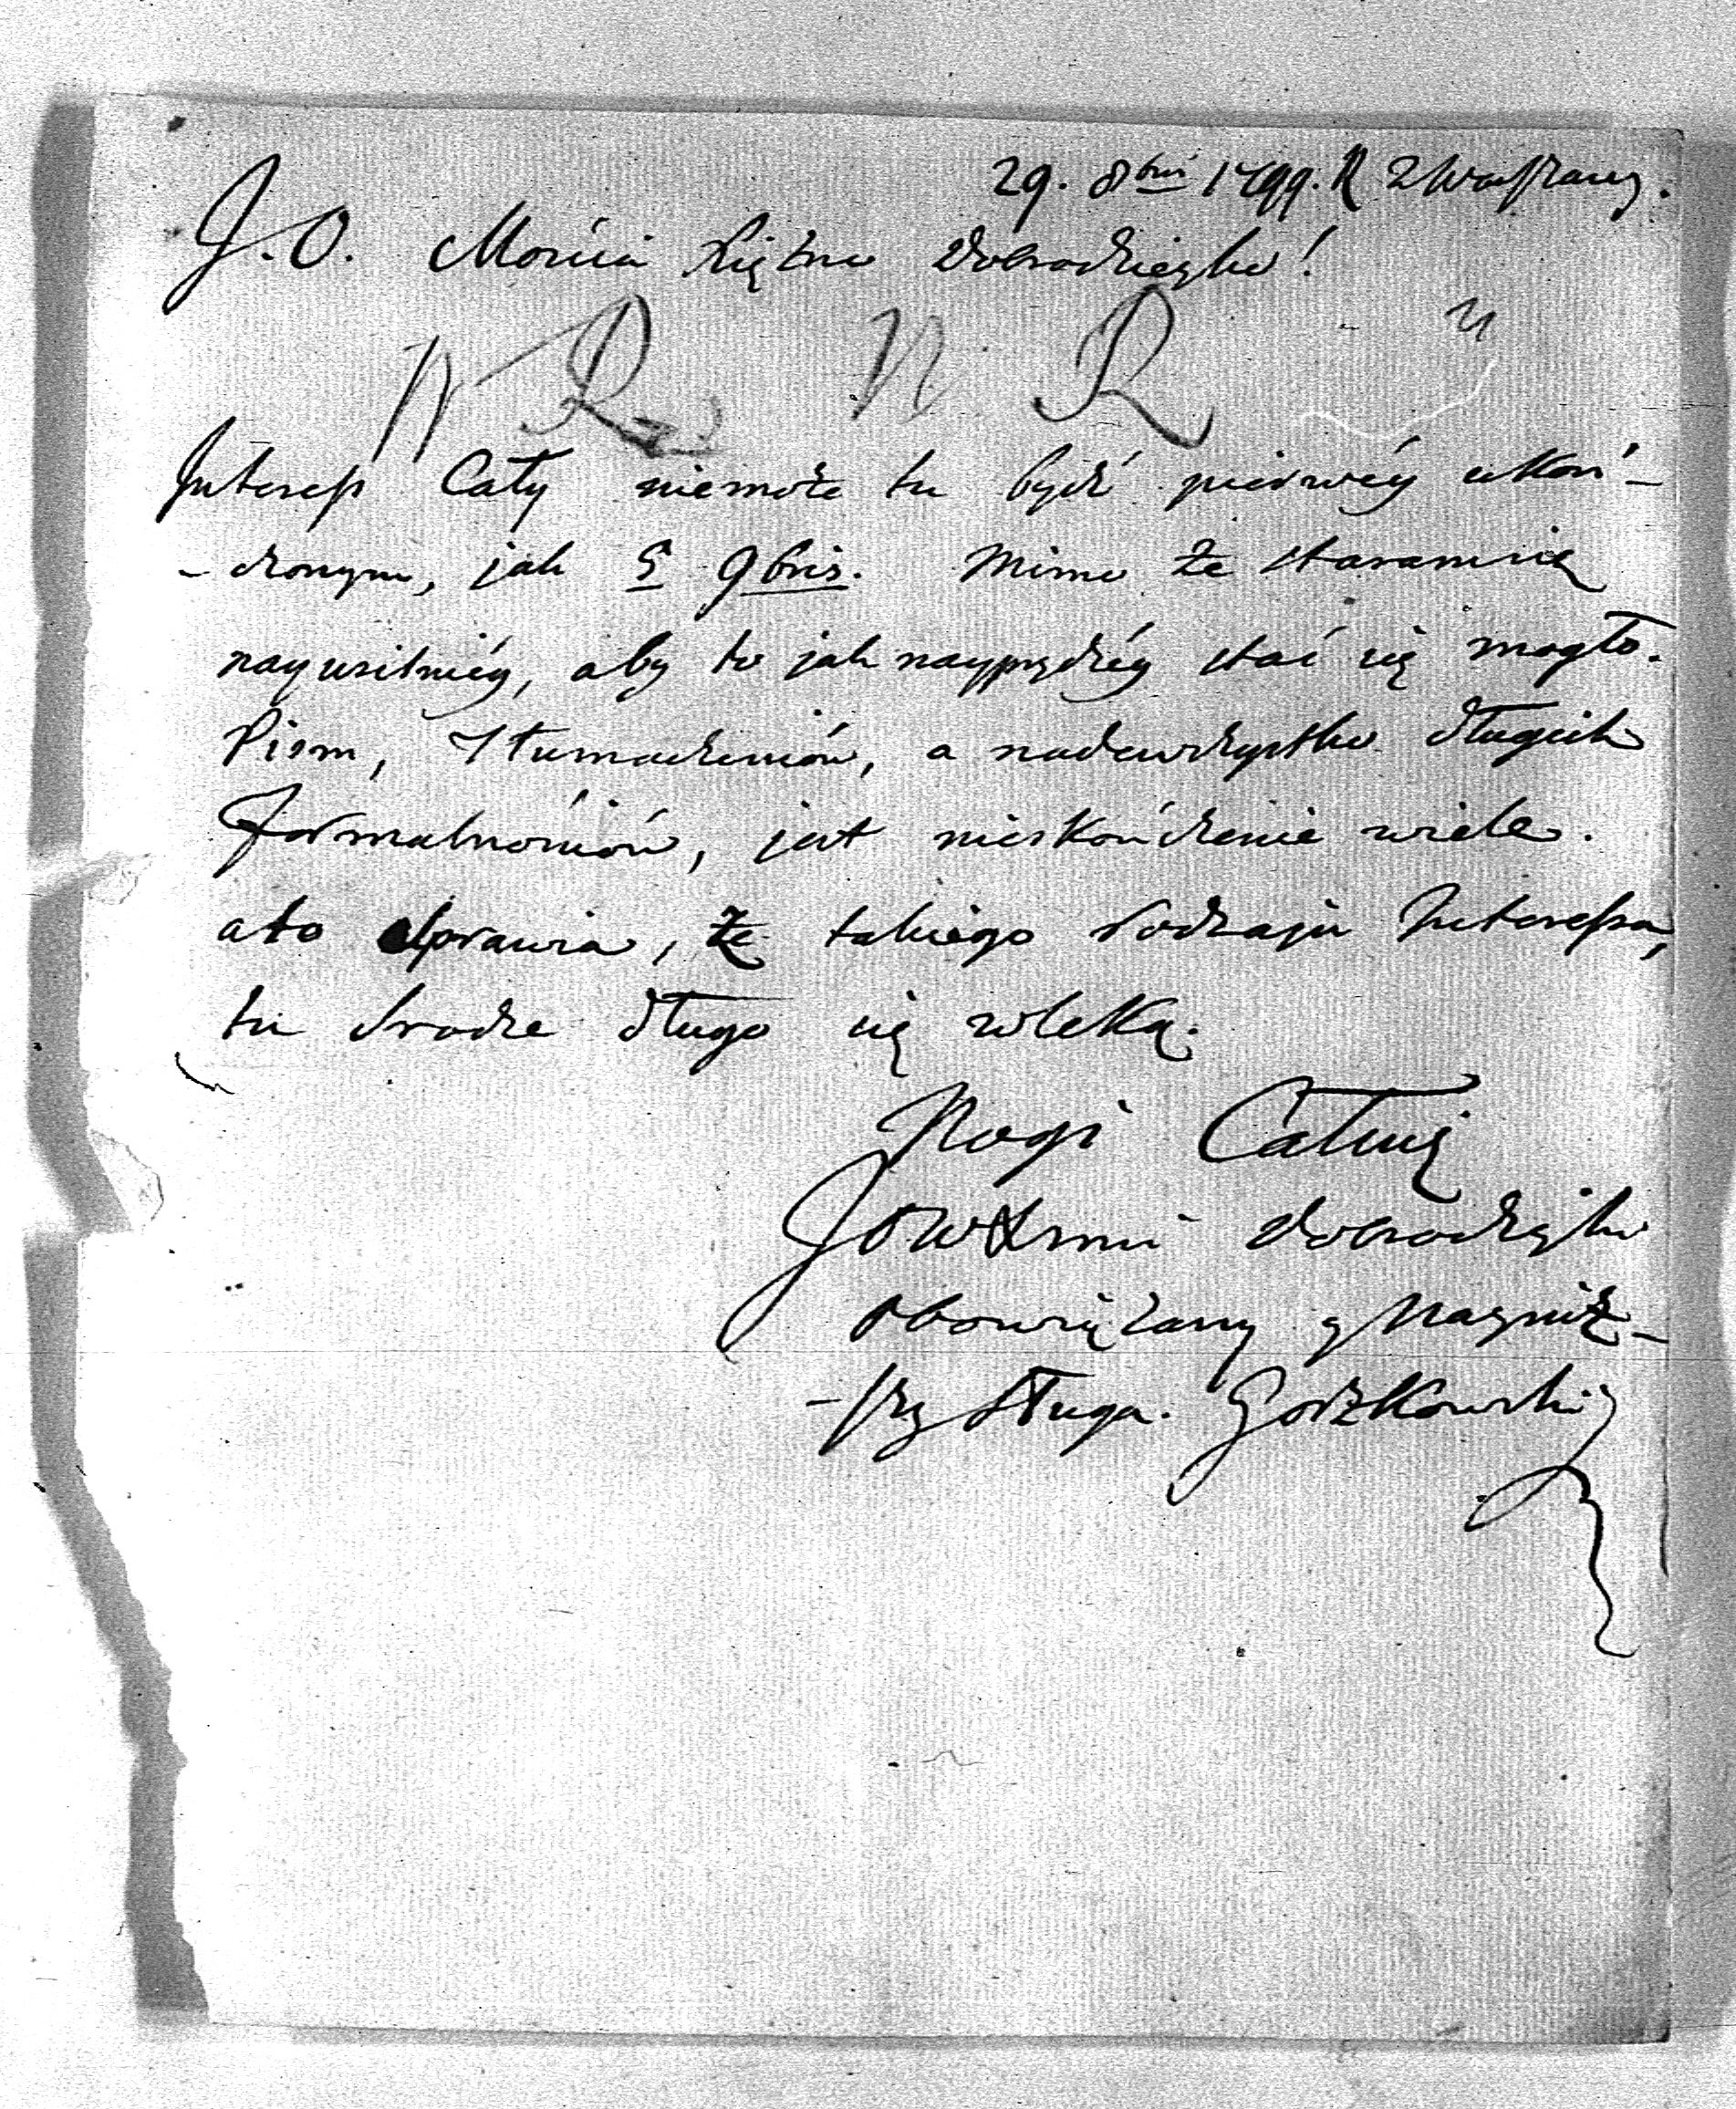 29. 8bris 1799. R z Warszawy.
J. O. Mościa Xiężno Dobrodzieyko!
N R N R
Interess Cały niemoże tu bydź pierwéy ukoń-
-czonym, jak 5 9bris. Mimo że staramsię
nayusilniéy, aby to jak nayprędzéy stać się mogło.
Pism, tłumaczeniów, a nadewszystko długich
formalnościów, jest nieskończenie wiele.
ato sprawia, że takiego rodzaju Interessa,
tu srodze długo się wleką.
Nogi Całuię
JOWXsmci Dobrodzyko
obowiązany y Nayniż-
-szy sługa. Gorzkowski